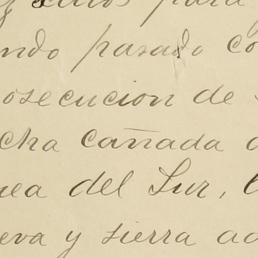 para
ndo pasado co
osecucion de
cha cañada
nea del Sur,
eva y sierra ad